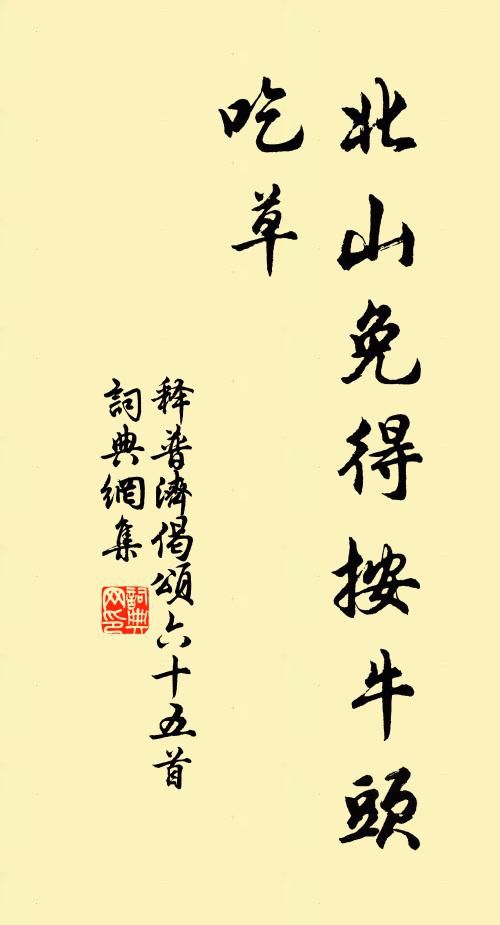 北山免得按牛頭
吃草
释普濟偈頌六十五首
詞典網集
詞典网印